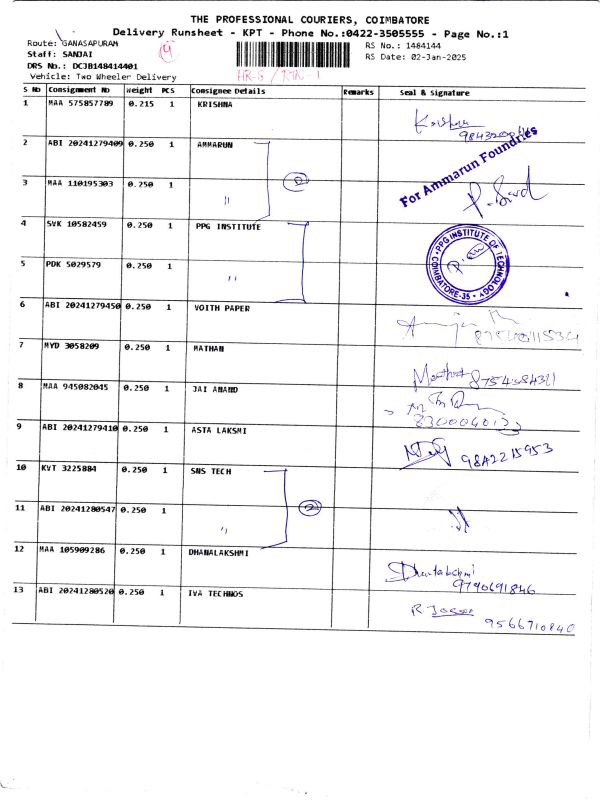 THE PROFESSIONAL COURIERS, COIMBATORE
Delivery Runsheet - KPT - Phone No.:0422-3505555 - Page No.:1
Route: GANASAPURAM
RS No.: 1484144
Staff: SANJAI
RS Date: 02-Jan-2025
DRS No.: DCJB148414401
Vehicle: Two Wheeler Delivery
S No Consignment No Weight PCS Consignee Details Remarks Seal & signature
1 MAA 575857789 0.215 1 KRISHNA
Krishna
2 ABI 20241279409 0.250 1 AMMARUN
For Ammarun Foundries
3 MAA 110195303 0.250 1 "
2
4 SVK 10582459 0.250 1 PPG INSTITUTE
PPG INSTITUTE OF TECHNOLOGY
COIMBATORE-35
5 PDK 5029579 0.250 1 "
6 ABI 20241279450 0.250 1 VOITH PAPER
7 MYD 3058209 0.250 1 MATHAN
8 MAA 945082045 0.250 1 JAI ANAND
9 ABI 20241279410 0.250 1 ASTA LAKSMI
9842215953
10 KVT 3225884 0.250 1 SNS TECH
11 ABI 20241280547 0.250 1 "
2
12 MAA 105909286 0.250 1 DHANALAKSHMI
9790691846
13 ABI 20241280520 0.250 1 IVA TECHNOS
9566710840